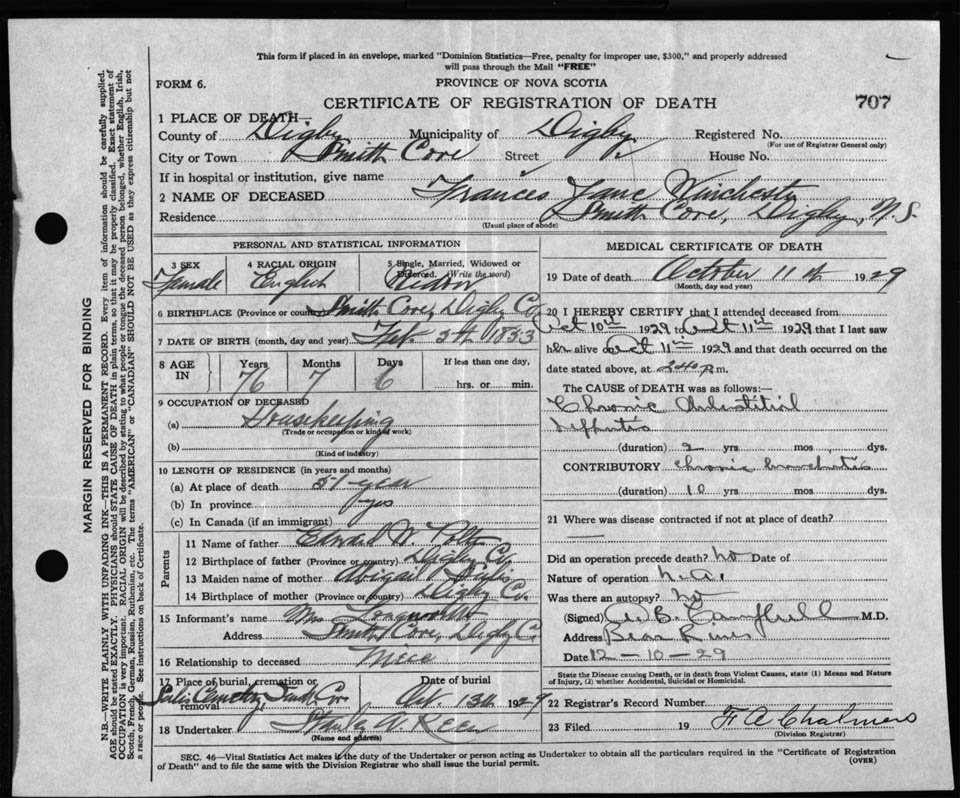 This form if placed in an envelope, marked "Dominion Statistics—Free, penalty for improper use, $300," and properly addressed
will pass through the Mail "FREE"
FORM 6.
PROVINCE OF NOVA SCOTIA
CERTIFICATE OF REGISTRATION OF DEATH
707
1 PLACE OF DEATH—
County of Digby Municipality of Digby Registered No.
(For use of Registrar General only)
City or Town Smith Cove Street House No.
If in hospital or institution, give name
2 NAME OF DECEASED Frances Jane Winchester
Residence Smith Cove, Digby, N.S.
(Usual place of abode)
PERSONAL AND STATISTICAL INFORMATION
3 SEX 4 RACIAL ORIGIN 5 Single, Married, Widowed or
Divorced. (Write the word)
Female English Widow
6 BIRTHPLACE (Province or country) Smith Cove, Digby Co.
7 DATE OF BIRTH (month, day and year) Feb. 5th 1853
8 AGE IN Years Months Days If less than one day,
76 7 6 hrs. or min.
9 OCCUPATION OF DECEASED
(a) Housekeeping
(Trade or occupation or kind of work)
(b)
(Kind of industry)
10 LENGTH OF RESIDENCE (in years and months)
(a) At place of death 51 year
(b) In province yes
(c) In Canada (if an immigrant)
Parents
11 Name of father Edward W.
12 Birthplace of father (Province or country) Digby Co.
13 Maiden name of mother Abigail
14 Birthplace of mother (Province or country) Digby Co.
15 Informant's name Mrs Longworth
Address Smith Cove, Digby Co.
16 Relationship to deceased Niece
17 Place of burial, cremation or removal Date of burial
Cemetery Smith Co. Oct. 13th 1929
18 Undertaker Stanley
(Name and address)
MEDICAL CERTIFICATE OF DEATH
19 Date of death October 11th 1929
(Month, day and year)
20 I HEREBY CERTIFY that I attended deceased from
Oct 10th 1929 to Oct 11th 1929 that I last saw
her alive on Oct 11th 1929 and that death occurred on the
date stated above, at 2 40 P.m.
The CAUSE OF DEATH was as follows:—
Chronic Interstitial
Nephritis
(duration) 2 yrs mos dys.
CONTRIBUTORY chronic bronchitis
(duration) 10 yrs mos dys.
21 Where was disease contracted if not at place of death?
Did an operation precede death? no Date of
Nature of operation n.a.
Was there an autopsy? no
(Signed) A. B. Campbell M.D.
Address Bear River
Date 12-10-29
State the Disease causing Death, or in Death from Violent Causes, state (1) Means and Nature
of Injury, (2) whether Accidental, Suicidal or Homicidal.
22 Registrar's Record Number
23 Filed 19 F A Chalmers
(Division Registrar)
SEC. 46—Vital Statistics Act makes it the duty of the Undertaker or person acting as Undertaker to obtain all the particulars required in the "Certificate of Registration
of Death" and to file the same with the Division Registrar who shall issue the burial permit.
(OVER)
MARGIN RESERVED FOR BINDING
N.B.—WRITE PLAINLY WITH UNFADING INK—THIS IS A PERMANENT RECORD. Every item of information should be carefully supplied.
AGE should be stated EXACTLY. PHYSICIANS should STATE CAUSE OF DEATH in plain terms, so that it may be properly classified. Exact statement of
OCCUPATION is very important. RACIAL ORIGIN will be described by stating to what people or tongue the deceased person belonged, whether English, Irish,
Scotch, French, German, Russian, Ruthenian, etc. The terms "AMERICAN" or "CANADIAN" SHOULD NOT BE USED as they express citizenship but not
a race or people. See instructions on back of Certificate.